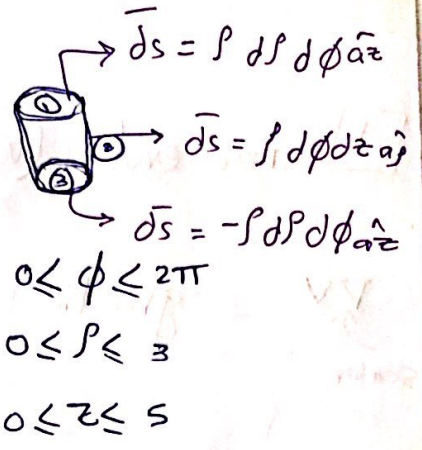 ① → d̅s̅ = ρ dρ dφ âz
② → d̅s̅ = ρ dφ dz âρ
③ → d̅s̅ = -ρ dρ dφ âz
0 ≤ φ ≤ 2π
0 ≤ ρ ≤ 3
0 ≤ z ≤ 5